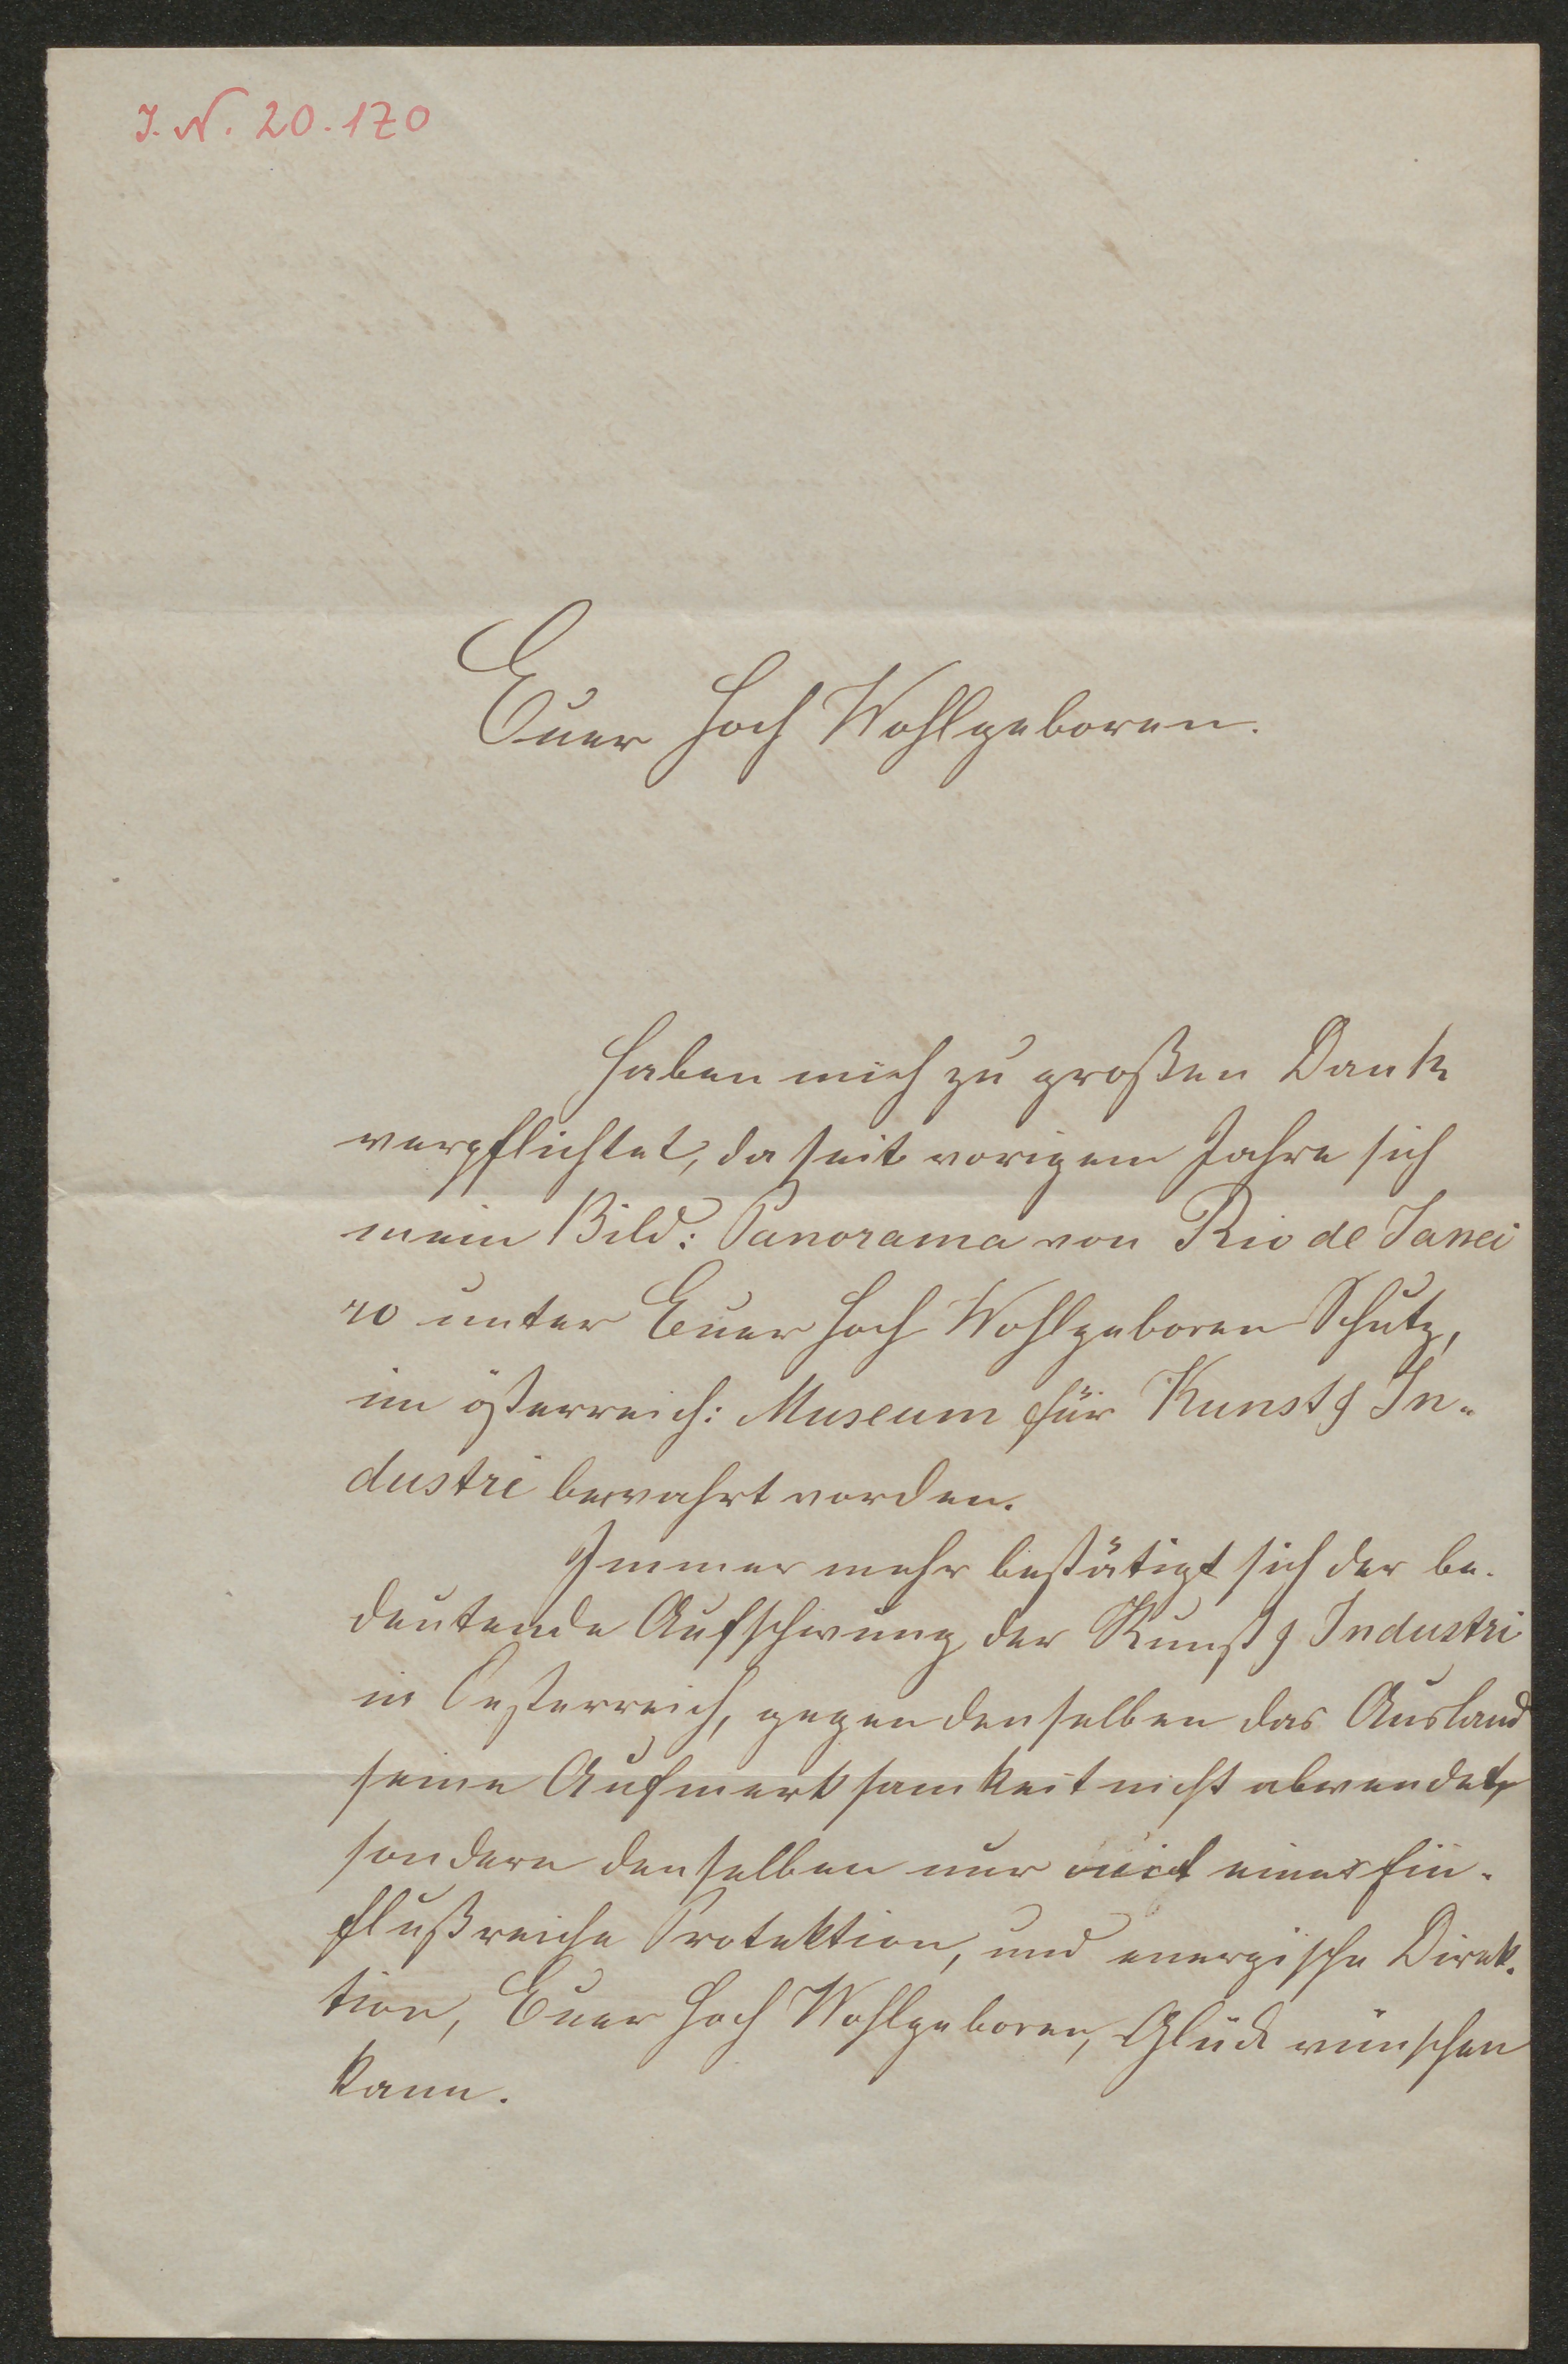 J. N. 20.170
Euer Hoch Wohlgeboren.
Haben mich zu großen Dank
verpflichtet, da seit vorigem Jahre sich
mein Bild: Panorama von Rio de Janei
ro unter Euer Hoch Wohlgeboren Schutz,
im österreich: Museum für Kunst & In-
dustri bewahrt worden.
Immer mehr bestätigt sich der be-
deutende Aufschwung der Kunst & Industri
in Oesterreich, gegen denselben das Ausland
seine Aufmerksamkeit nicht abwendet,
sondern denselben nur mit einer ein-
flußreiche Protektion, und energische Direk-
tion, Euer Hoch Wohlgeboren, Glück wünschen
kann.